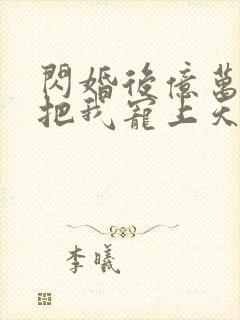 閃婚後億萬
把我寵上天
李曦